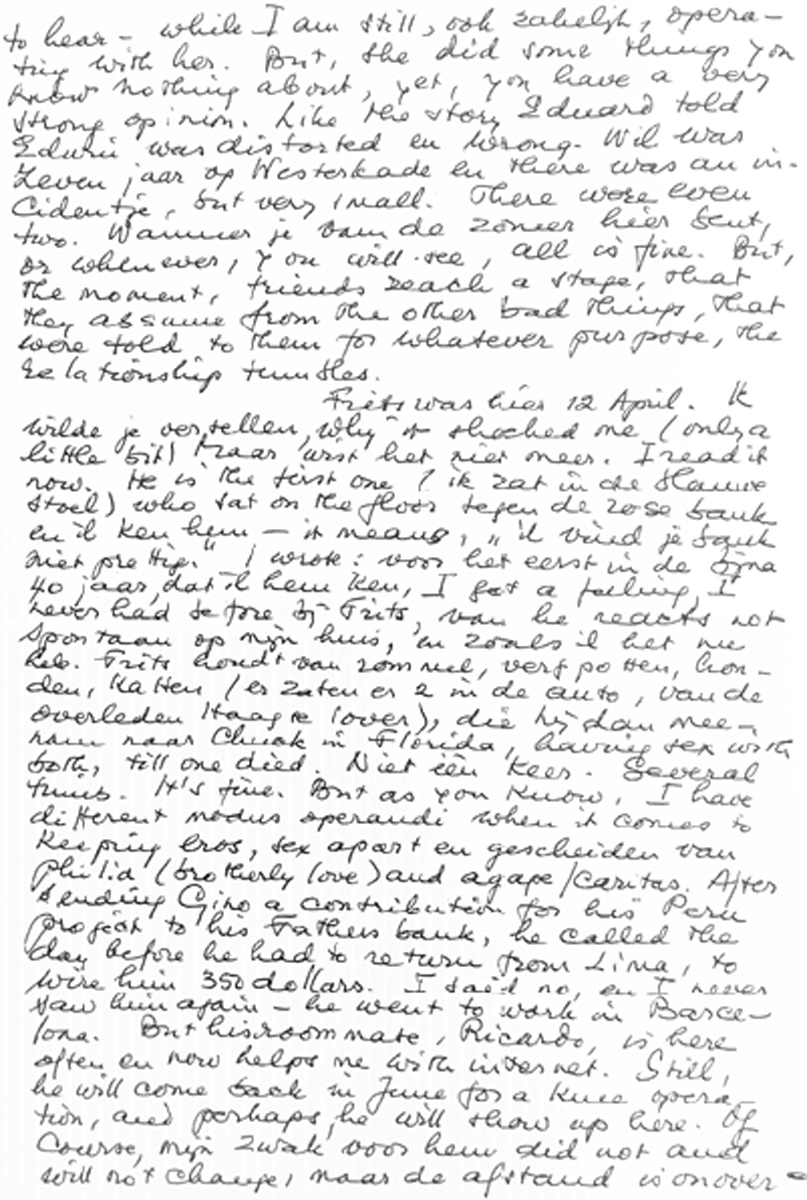 to hear – while I am still, ook zakelijk, opera–
ting with her. But, she did some things you
know nothing about, yet, you have a very
strong opinion. Like the story Eduard told
Edwin was distorted en wrong. Wil was
zeven jaar op Westerkade en there was an in-
cidentje, but very small. There were even
two. Wanneer je van de zomer hier bent,
or whenever, you will see, all is fine. But,
the moment, friends reach a stage, that
they assume from the other bad things, that
were told to them for whatever purpose, the
relationship tumbles.
Frits was hier 12 April. Ik
wilde je vertellen, why it shocked me (only a
little bit) maar wist het niet meer. I read it
now. He is the first one (ik zat in de blauwe
stoel) who sat on the floor tegen de roze bank
en ik ken hem – it means, „ik vind je bank
niet prettig." I wrote: voor het eerst in de bijna
40 jaar, dat ik hem ken, I got a feeling, I
never had before bij Frits, van he reacts not
spontaan op mijn huis, en zoals ik het nu
heb. Frits houdt van rommel, verfpotten, hon–
den, katten (er zaten er 2 in de auto, van de
overleden Haagse lover), die hij dan mee–
nam naar Chuck in Florida, having sex with
both, till one died. Niet één keer. Several
times. It's fine. But as you know, I have
different modus operandi when it comes to
keeping eros, sex apart en gescheiden van
philia (brotherly love) and agape/caritas. After
sending Gino a contribution for his Peru
project to his Fathers bank, he called the
day before he had to return from Lima, to
wire him 350 dollars. I said no, en I never
saw him again – he went to work in Barce–
lona. But his roommate, Ricardo, is here
often en now helps me with internet. Still,
he will come back in June for a knee opera–
tion, and perhaps, he will show up here. Of
course, mijn zwak voor hem did not and
will not change, maar de afstand is onover–